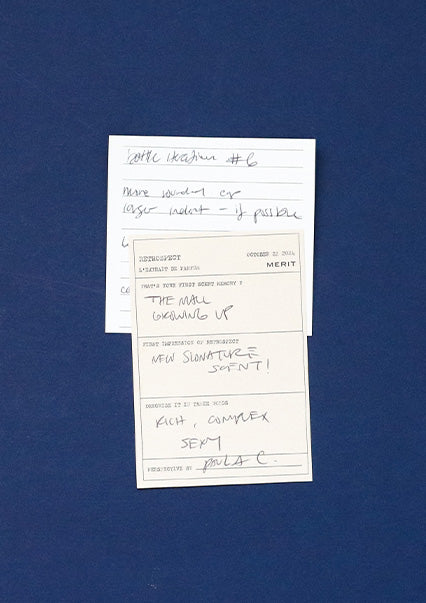 bottle iteration #6
more rounded cap
larger indent - if possible
RETROSPECT
OCTOBER 22 2024
L'EXTRAIT DE PARFUM
MERIT
WHAT'S YOUR FIRST SCENT MEMORY ?
THE MALL
GROWING UP
FIRST IMPRESSION OF RETROSPECT
NEW SIGNATURE
SCENT!
DESCRIBE IT IN THREE WORDS
RICH, COMPLEX
SEXY
PERSPECTIVE BY PAULA C.